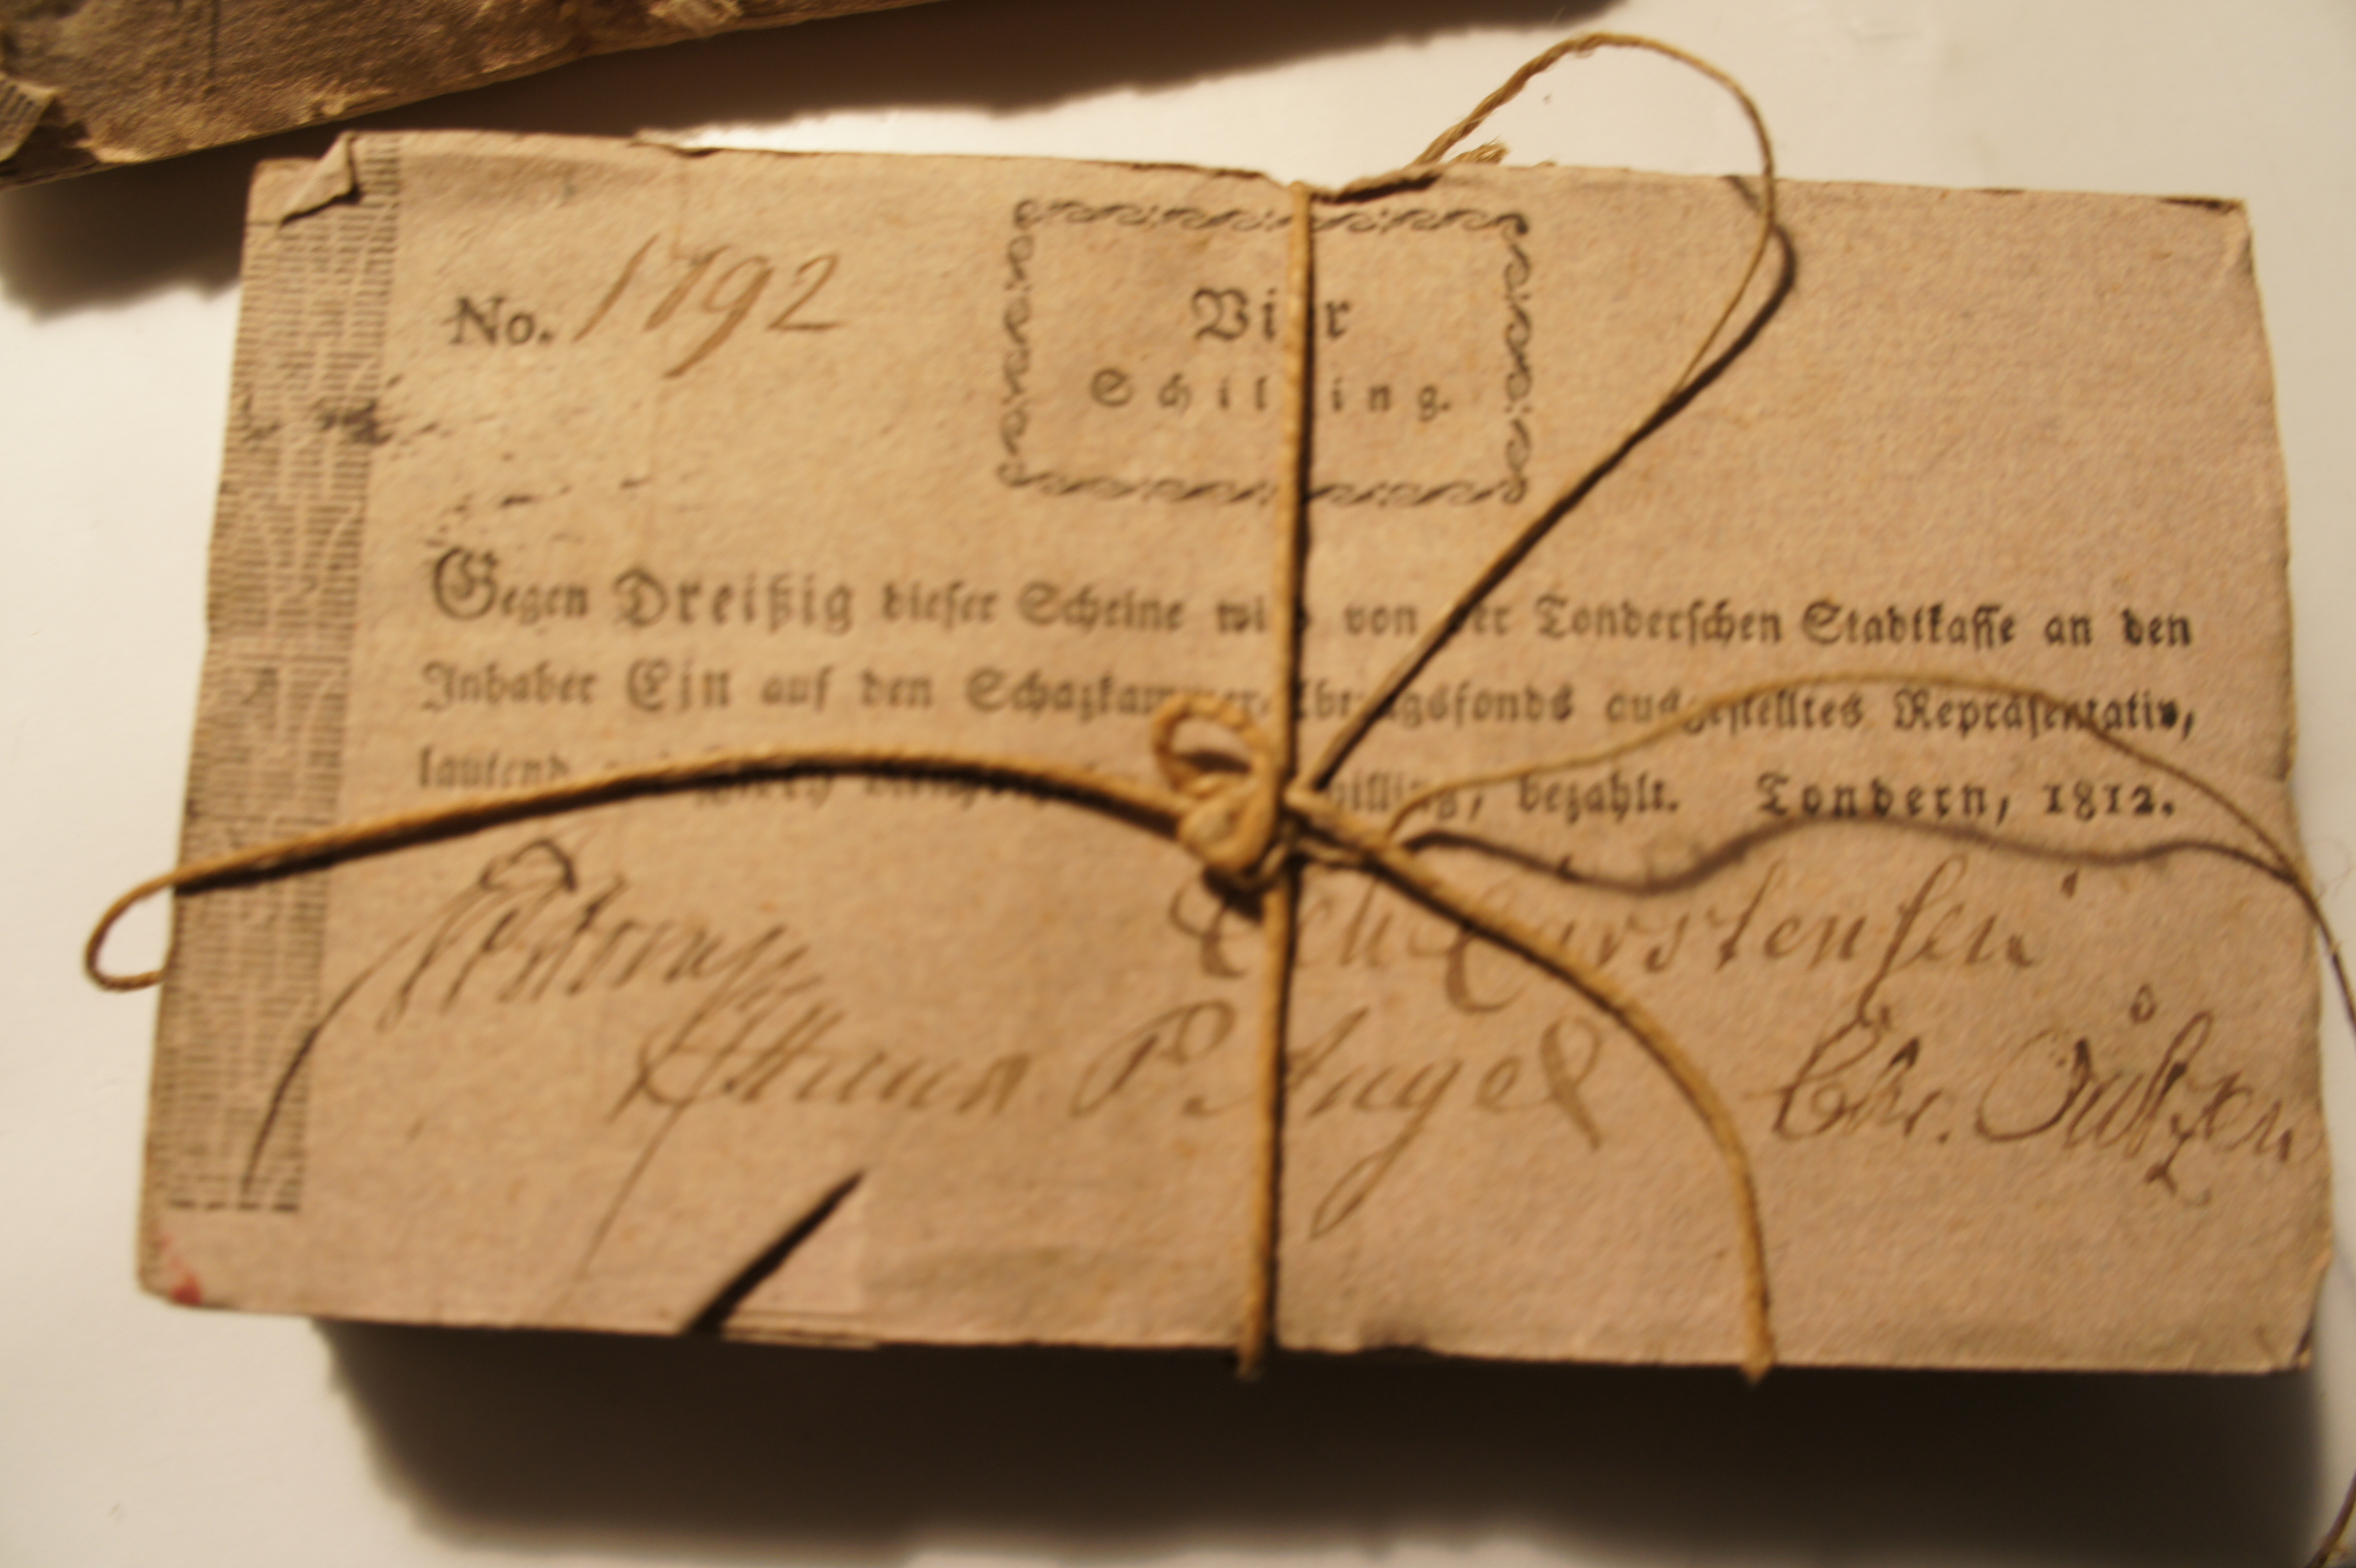 No. 1792
Vier
Schilling.
Gegen Dreißig dieser Scheine wird von der Tonderschen Stadtkasse an den
Inhaber Ein auf den Schazkammer-Abtragsfonds ausgestelltes Repräsentativ,
lautend Schilling, bezahlt. Tondern, 1812.
Carstensen
P. Angel Chr.